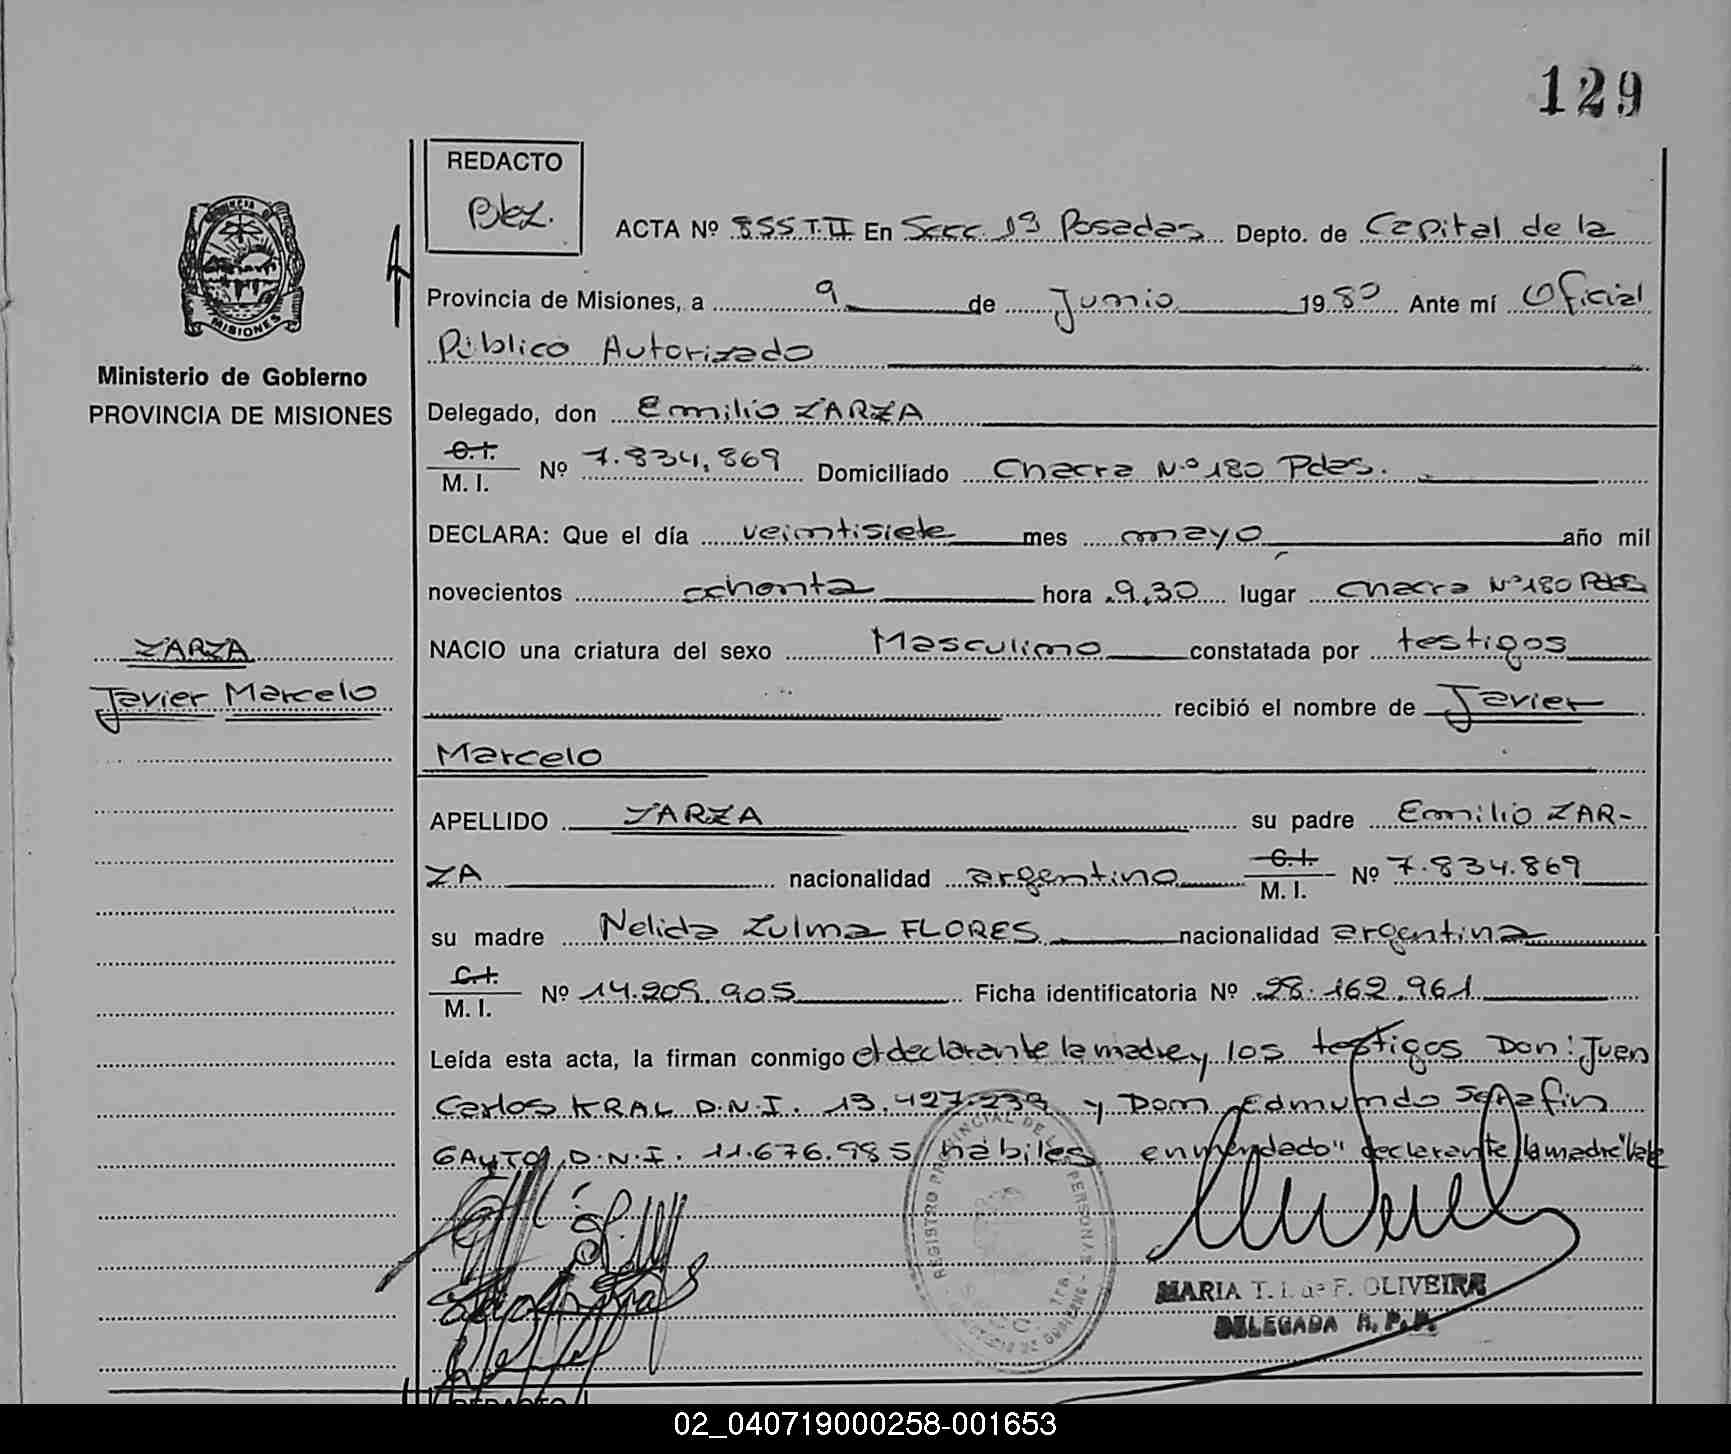 129
REDACTO
Blez.
ACTA Nº 855 T.II En Secc. 1ª Posadas Depto. de Capital de la
Provincia de Misiones, a 9 de Junio 1980 Ante mí Oficial
Público Autorizado
MISIONES
Ministerio de Gobierno
PROVINCIA DE MISIONES
Delegado, don Emilio ZARZA
C.I.
M. I. Nº 7.834.869 Domiciliado Chacra N.º 180 Pdas.
DECLARA: Que el día veintisiete mes mayo año mil
novecientos ochenta hora 9,30 lugar Chacra Nº 180 Pdas
NACIO una criatura del sexo Masculino constatada por testigos
ZARZA
Javier Marcelo
recibió el nombre de Javier
Marcelo
APELLIDO ZARZA su padre Emilio ZAR-
ZA nacionalidad argentino C.I. M. I. Nº 7.834.869
su madre Nelida Zulma FLORES nacionalidad argentina
C.I.
M. I. Nº 14.209.905 Ficha identificatoria Nº 28.162.961
Leída esta acta, la firman conmigo el declarante la madre y los testigos Don: Juan
Carlos KRAL D.N.I. 13.427.239 y Don Edmundo Serafin
GAUTO D.N.I. 11.676.985 habiles enmendado" declarante la madre" Vale
REGISTRO PROVINCIAL DE LAS PERSONAS
MARIA T. I. de F. OLIVEIRA
DELEGADA R. P. P.
REDACTO
02_040719000258-001653